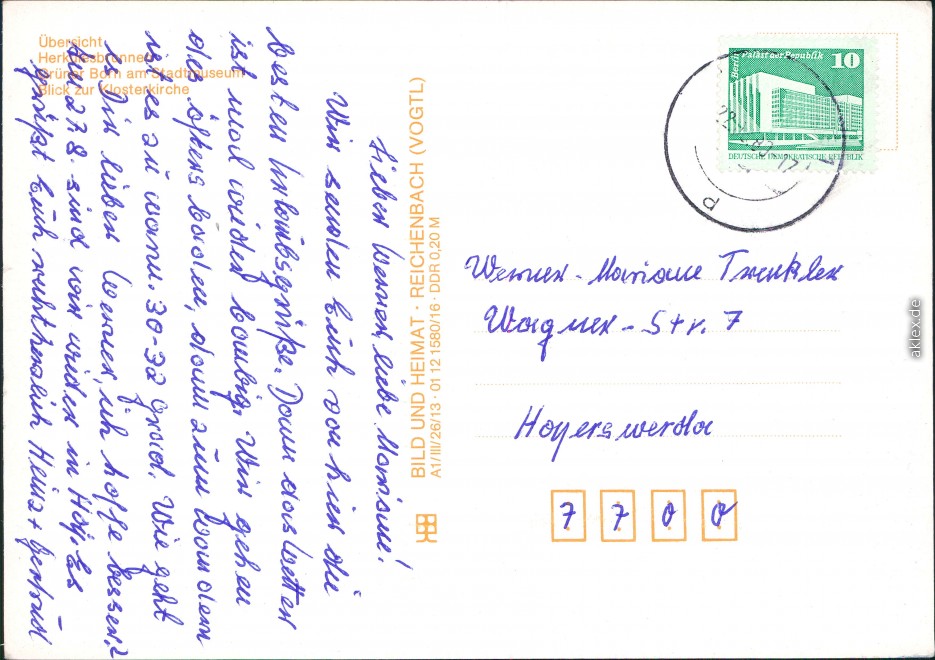 Übersicht
Herkulesbrunnen
Grüner Born am Stadtmuseum
Blick zur Klosterkirche
Lieber Werner, liebe Mariane!
Wir senden Euch von hier die
besten Urlaubsgrüße. Denn das Wetter
ist mal wieder
des öfteren baden, dann zum Wandern
ist es zu warm. 30-32 Grad. Wie geht
es Dir lieber Werner, ich hoffe besser?
Am 27.8. sind wir wieder in Hoy. Es
grüßt Euch recht herzlich Heinz + Gertrud
BILD UND HEIMAT · REICHENBACH (VOGTL)
A1/III/26/13 · 01 12 1580/16 · DDR 0,20 M
Berlin
Palast der Republik
10
DEUTSCHE DEMOKRATISCHE REPUBLIK
Werner - Mariane Trenkler
Wagner-Str. 7
Hoyerswerda
7 7 0 0
aklex.de